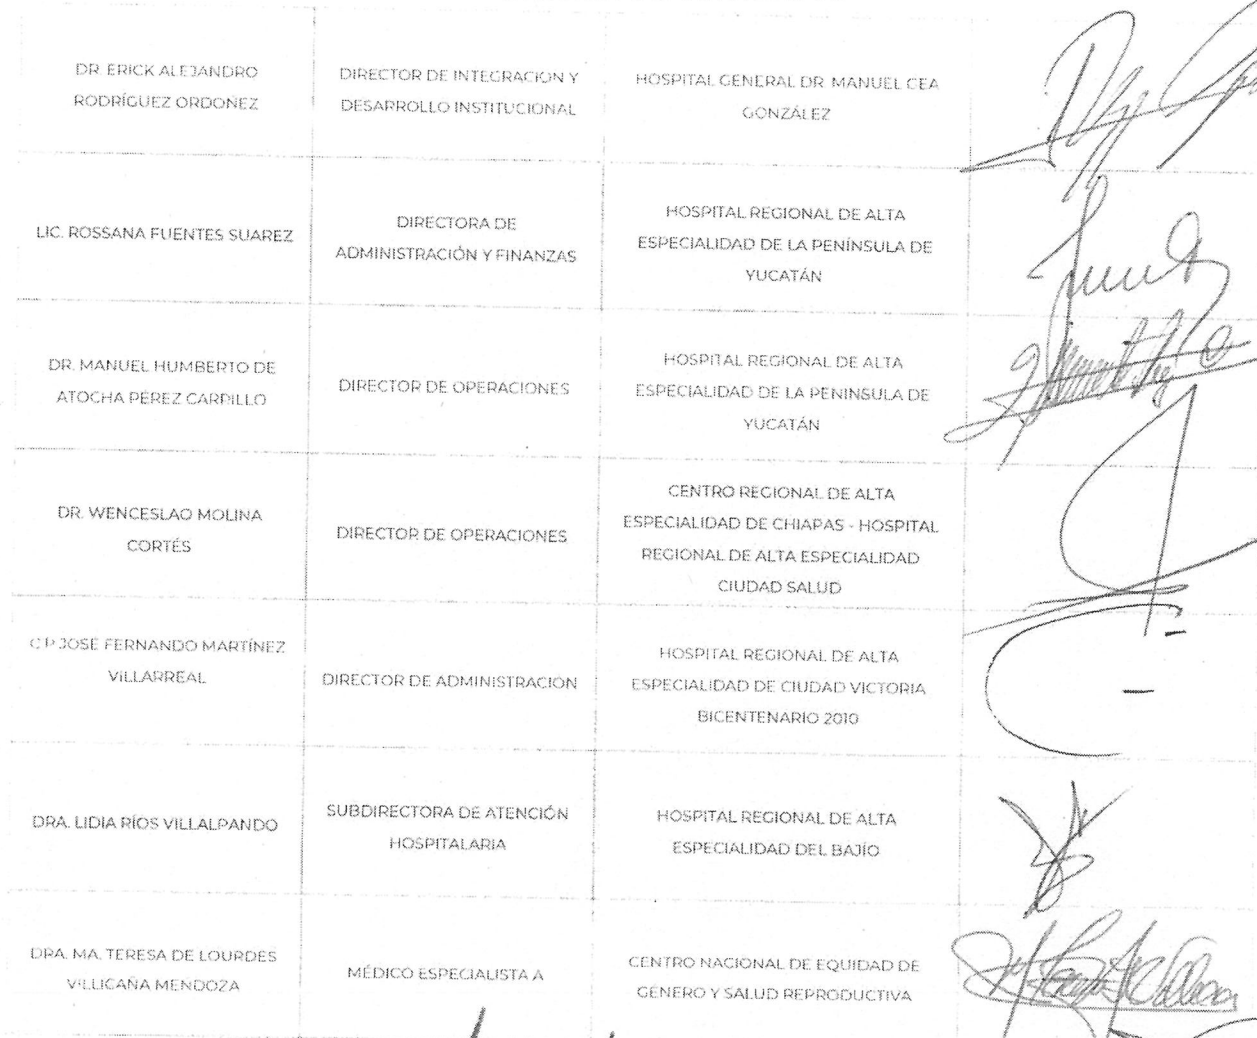 DR. ERICK ALEJANDRO
RODRÍGUEZ ORDOÑEZ
DIRECTOR DE INTEGRACION Y
DESARROLLO INSTITUCIONAL
HOSPITAL GENERAL DR. MANUEL GEA
GONZÁLEZ
LIC. ROSSANA FUENTES SUAREZ
DIRECTORA DE
ADMINISTRACIÓN Y FINANZAS
HOSPITAL REGIONAL DE ALTA
ESPECIALIDAD DE LA PENÍNSULA DE
YUCATÁN
DR. MANUEL HUMBERTO DE
ATOCHA PÉREZ CARRILLO
DIRECTOR DE OPERACIONES
HOSPITAL REGIONAL DE ALTA
ESPECIALIDAD DE LA PENINSULA DE
YUCATÁN
DR. WENCESLAO MOLINA
CORTÉS
DIRECTOR DE OPERACIONES
CENTRO REGIONAL DE ALTA
ESPECIALIDAD DE CHIAPAS - HOSPITAL
REGIONAL DE ALTA ESPECIALIDAD
CIUDAD SALUD
C.P. JOSE FERNANDO MARTÍNEZ
VILLARREAL
DIRECTOR DE ADMINISTRACION
HOSPITAL REGIONAL DE ALTA
ESPECIALIDAD DE CIUDAD VICTORIA
BICENTENARIO 2010
DRA. LIDIA RÍOS VILLALPANDO
SUBDIRECTORA DE ATENCIÓN
HOSPITALARIA
HOSPITAL REGIONAL DE ALTA
ESPECIALIDAD DEL BAJÍO
DRA. MA. TERESA DE LOURDES
VILLICAÑA MENDOZA
MÉDICO ESPECIALISTA A
CENTRO NACIONAL DE EQUIDAD DE
GENERO Y SALUD REPRODUCTIVA